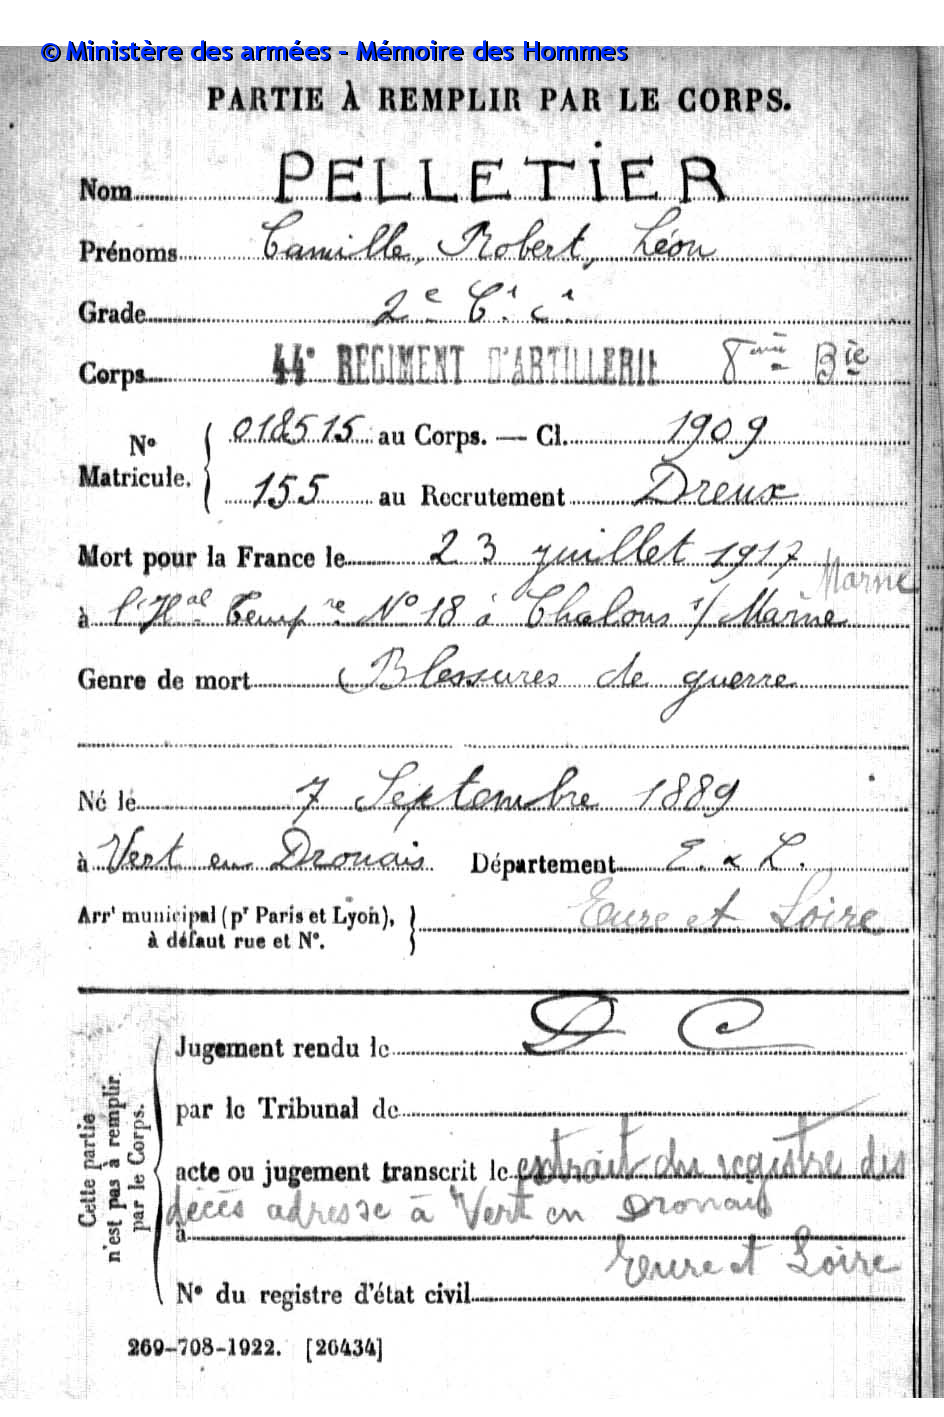 © Ministère des armées - Mémoire des Hommes
PARTIE À REMPLIR PAR LE CORPS.
Nom PELLETIER
Prénoms Camille, Robert, Léon
Grade 2e C. c.
Corps 44e REGIMENT D'ARTILLERIE 8ème Bie
N° Matricule. { 018515 au Corps. — Cl. 1909
155 au Recrutement Dreux
Mort pour la France le 23 juillet 1917
Marne
à l'Hal Tempre N° 18 à Chalons s/ Marne
Genre de mort Blessures de guerre
Né le 7 Septembre 1889
à Vert en Drouais Département E. & L.
Arrt municipal (pr Paris et Lyon), à défaut rue et N°. } Eure et Loire
D C
Jugement rendu le
par le Tribunal de
acte ou jugement transcrit le extrait du registre des
décès adressé à Vert en Drouais
à
Eure et Loire
N° du registre d'état civil
Cette partie n'est pas à remplir par le Corps.
269-708-1922. [26434]